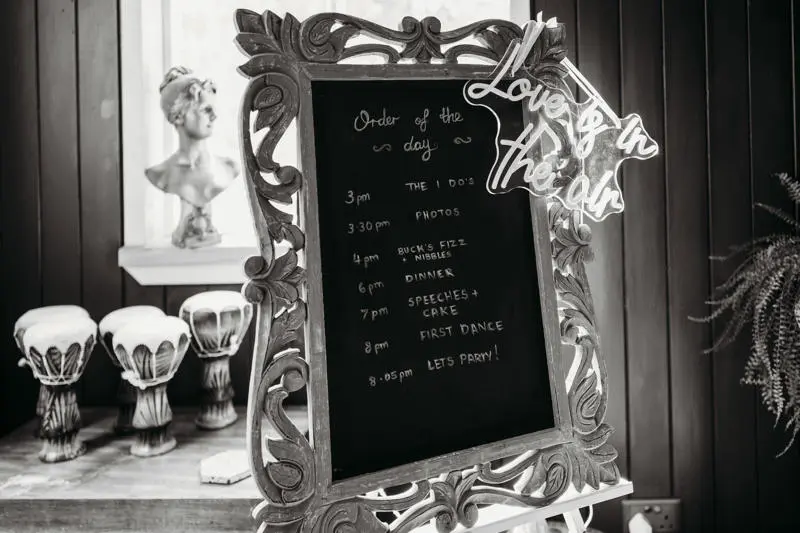 Order of the
~ day ~
3pm THE I DO'S
3·30pm PHOTOS
4pm BUCK'S FIZZ
+ NIBBLES
6pm DINNER
7pm SPEECHES +
CAKE
8pm FIRST DANCE
8·05pm LETS PARTY!
Love is in
the air